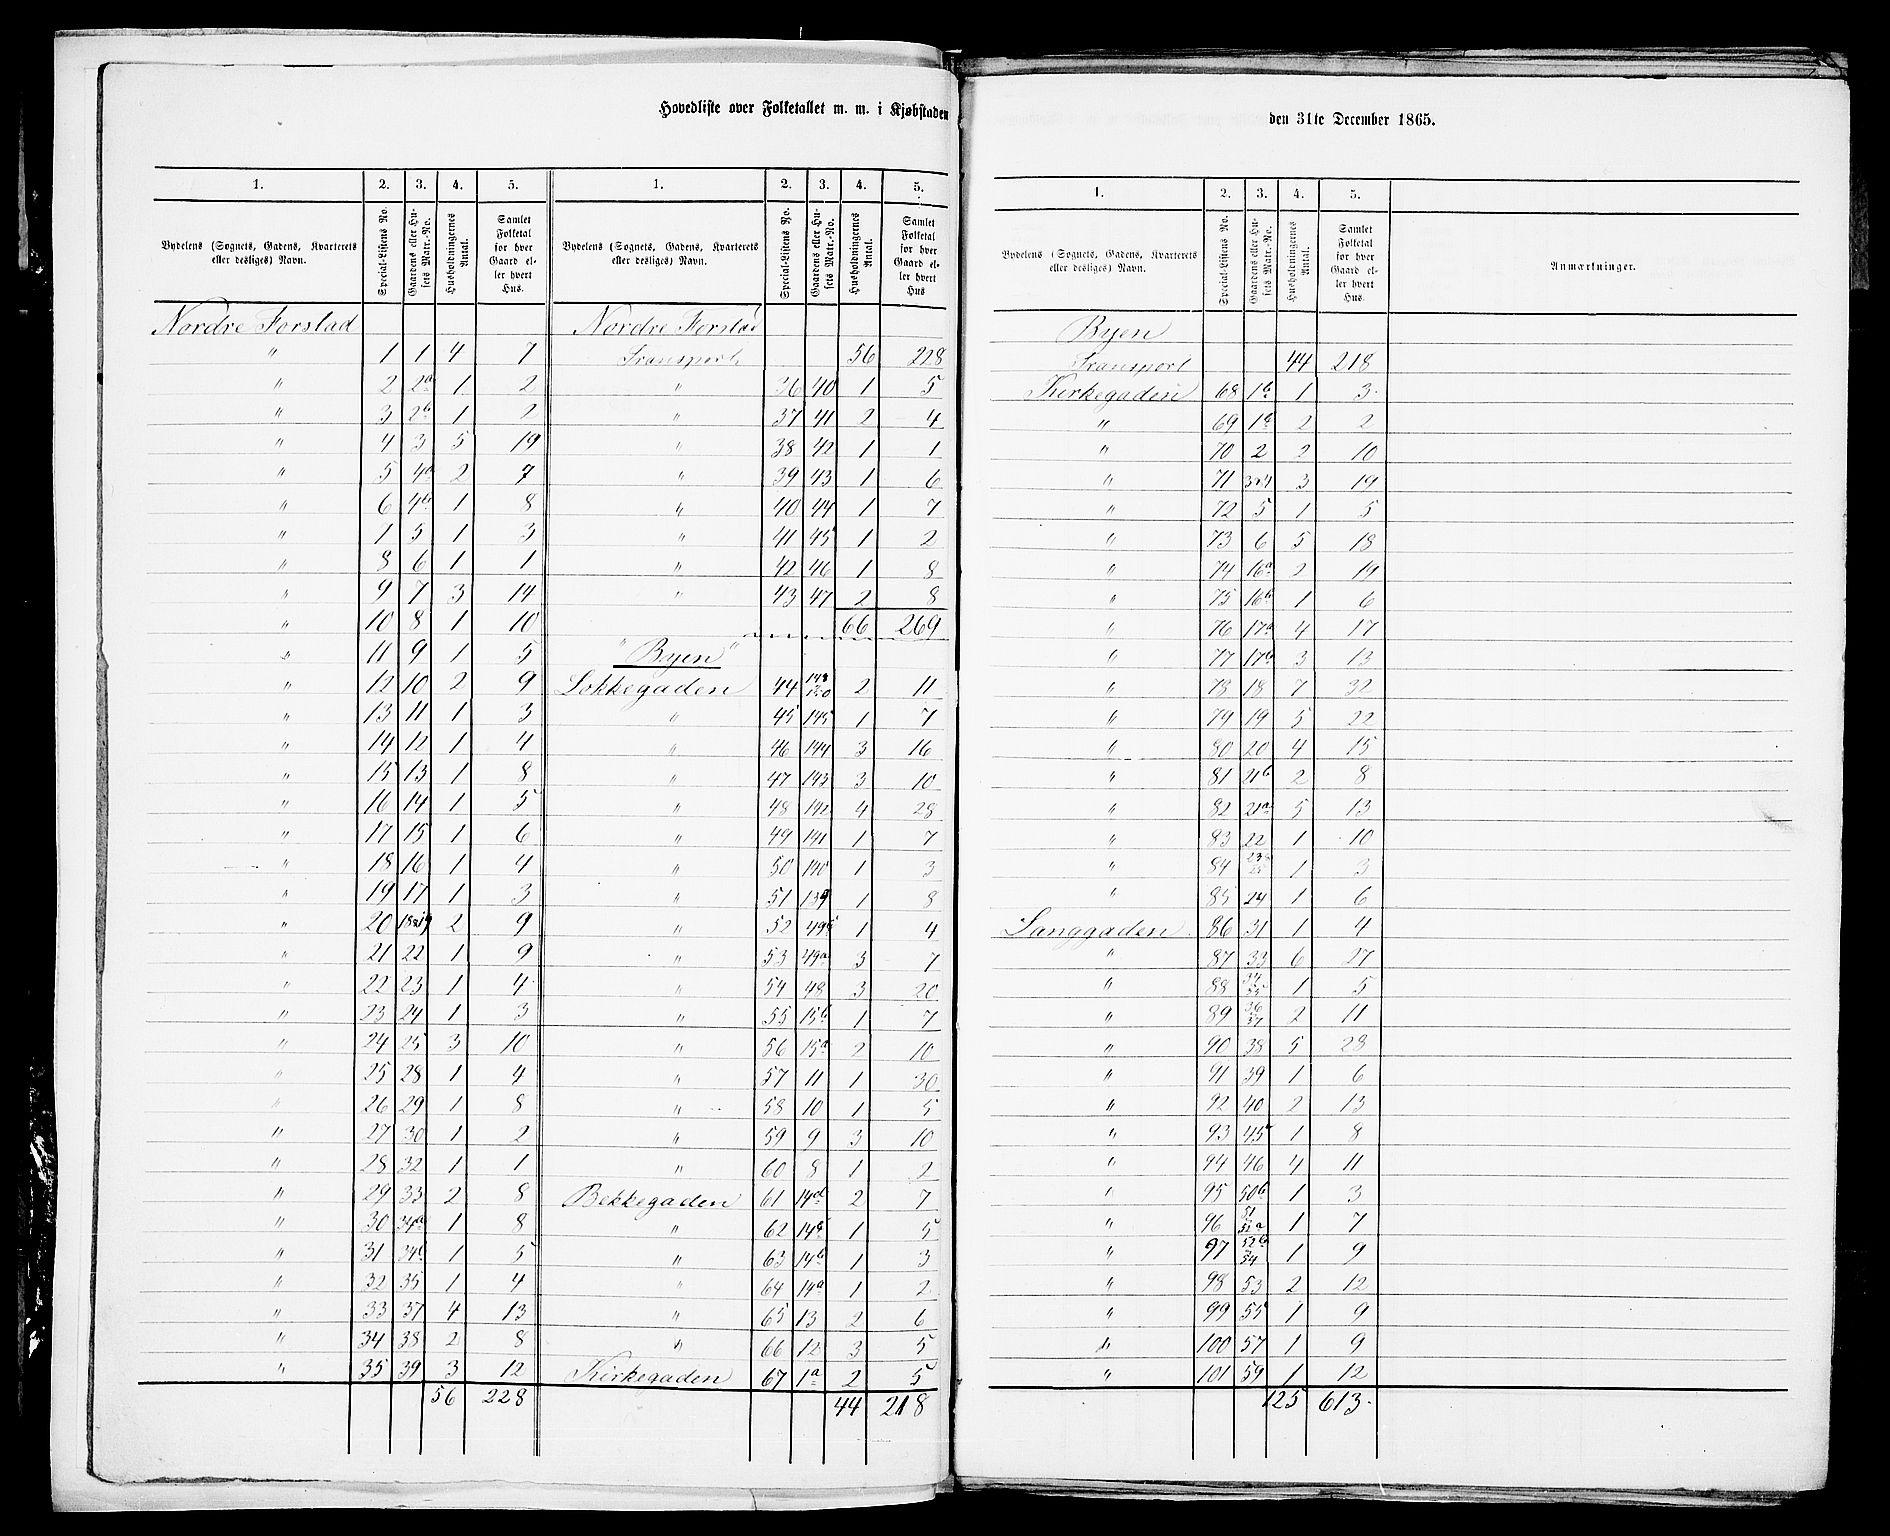 Hovedliste over Folketallet m. m. i Kjøbstaden den 31te December 1865.
1. 2. 3. 4. 5.
Bydelens (Sognets, Gadens, Kvarterets eller desliges) Navn. Special-Listens No. Gaardens eller Husets Matr.-No. Husholdningernes Antal. Samlet Folketal for hver Gaard eller hvert Hus.
Nordre Forstad
" 1 1 4 7
" 2 2a 1 2
" 3 2b 1 2
" 4 3 5 19
" 5 4a 2 7
" 6 4b 1 8
" 7 5 1 3
" 8 6 1 1
" 9 7 3 14
" 10 8 1 10
" 11 9 1 5
" 12 10 2 9
" 13 11 1 3
" 14 12 1 4
" 15 13 1 8
" 16 14 1 5
" 17 15 1 6
" 18 16 1 4
" 19 17 1 3
" 20 18&19 2 9
" 21 22 1 9
" 22 23 1 4
" 23 24 1 3
" 24 25 3 10
" 25 28 1 4
" 26 29 1 8
" 27 30 1 2
" 28 32 1 1
" 29 33 2 8
" 30 34a 1 8
" 31 34b 1 5
" 32 35 1 4
" 33 37 4 13
" 34 38 2 8
" 35 39 3 12
56 228
1. 2. 3. 4. 5.
Bydelens (Sognets, Gadens, Kvarterets eller desliges) Navn. Special-Listens No. Gaardens eller Husets Matr.-No. Husholdningernes Antal. Samlet Folketal for hver Gaard eller hvert Hus
Nordre Forstad
Transport 56 228
" 36 40 1 5
" 37 41 2 4
" 38 42 1 1
" 39 43 1 6
" 40 44 1 7
" 41 45 1 2
" 42 46 1 8
" 43 47 2 8
66 269
"Byen"
Lokkegaden 44 2 11
" 45 145 1 7
" 46 144 3 16
" 47 143 3 10
" 48 142 4 28
" 49 141 1 7
" 50 140 1 3
" 51 139 1 8
" 52 49b 1 4
" 53 49a 3 7
" 54 48 3 20
" 55 15b 1 7
" 56 15a 2 10
" 57 11 1 30
" 58 10 1 5
" 59 9 3 10
" 60 8 1 2
Bekkegaden 61 14d 2 7
" 62 14c 1 5
" 63 14b 1 3
" 64 14a 1 2
" 65 13 2 6
" 66 12 3 5
Kirkegaden 67 1a 2 5
44 218
1. 2. 3. 4. 5.
Bydelens (Sognets, Gadens, Kvarterets eller desliges) Navn. Special-Listens No. Gaardens eller Husets Matr.-No. Husholdningernes Antal. Samlet Folketal for hver Gaard eller hvert Hus. Anmærkninger.
Byen
Transport 44 218
Kirkegaden 68 1b 1 3
" 69 1c 2 2
" 70 2 2 10
" 71 3&4 3 19
" 72 5 1 5
" 73 6 5 18
" 74 16a 2 19
" 75 16b 1 6
" 76 17a 4 17
" 77 17b 3 13
" 78 18 7 32
" 79 19 5 22
" 80 20 4 15
" 81 21b 2 8
" 82 21a 5 13
" 83 22 1 10
" 84 1 3
" 85 24 1 6
Langgaden 86 31 1 4
" 87 33 6 27
" 88 34 35 1 5
" 89 36 37 2 11
" 90 38 5 28
" 91 39 1 6
" 92 40 2 13
" 93 45 1 8
" 94 46 4 11
" 95 50b 1 3
" 96 51 52a 1 7
" 97 52b 54 1 9
" 98 53 2 12
" 99 55 1 9
" 100 57 1 9
" 101 59 1 12
125 613